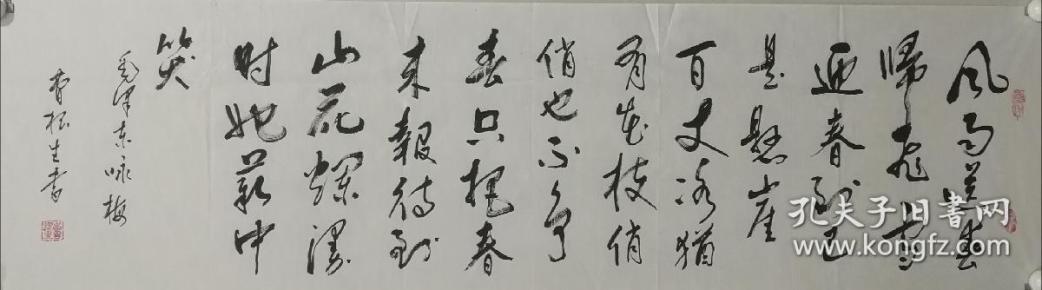 风雨送春
歸飛雪
迎春到已
是懸崖
百丈冰犹
有花枝俏
俏也不争
春只把春
来報待到
山花爛漫
时她叢中
笑
毛泽东咏梅
松生书
孔夫子旧書网
www.kongfz.com